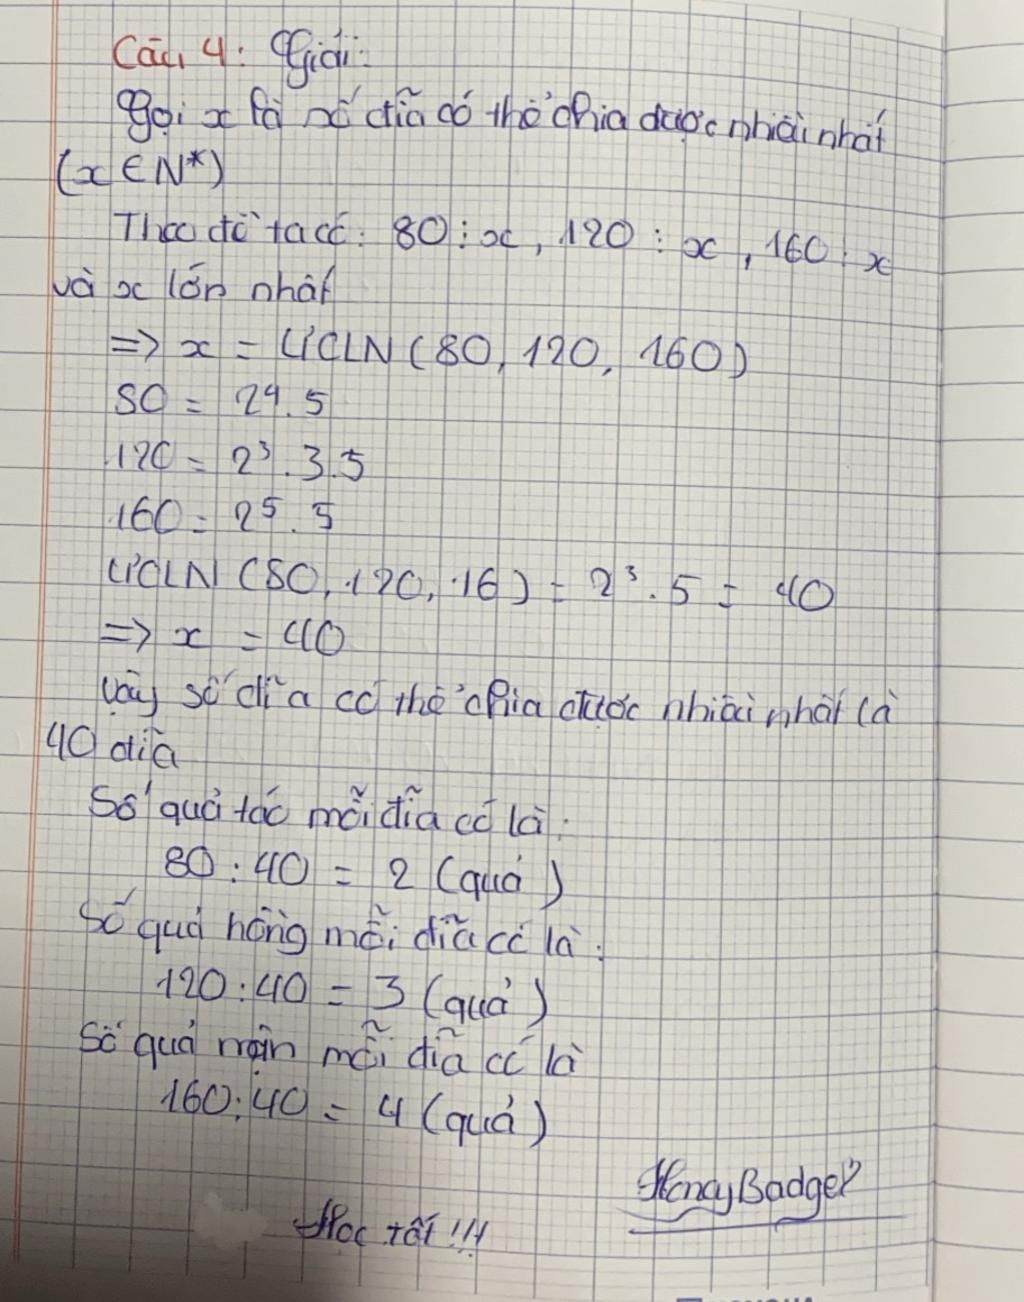 Câu 4: Giải:
Gọi x là số đĩa có thể chia được nhiều nhất
(x ∈ N*)
Theo đề ta có: 80 ⋮ x, 120 ⋮ x, 160 ⋮ x
và x lớn nhất
=> x = ƯCLN (80, 120, 160)
80 = 2⁴.5
120 = 2³.3.5
160 = 2⁵.5
ƯCLN (80, 120, 16) = 2³.5 = 40
=> x = 40
Vậy số đĩa có thể chia được nhiều nhất là
40 đĩa
Số quả táo mỗi đĩa có là:
80 : 40 = 2 (quả)
Số quả hồng mỗi đĩa có là:
120 : 40 = 3 (quả)
Số quả mận mỗi đĩa có là
160 : 40 = 4 (quả)
HoneyBadger
Học tốt !!!